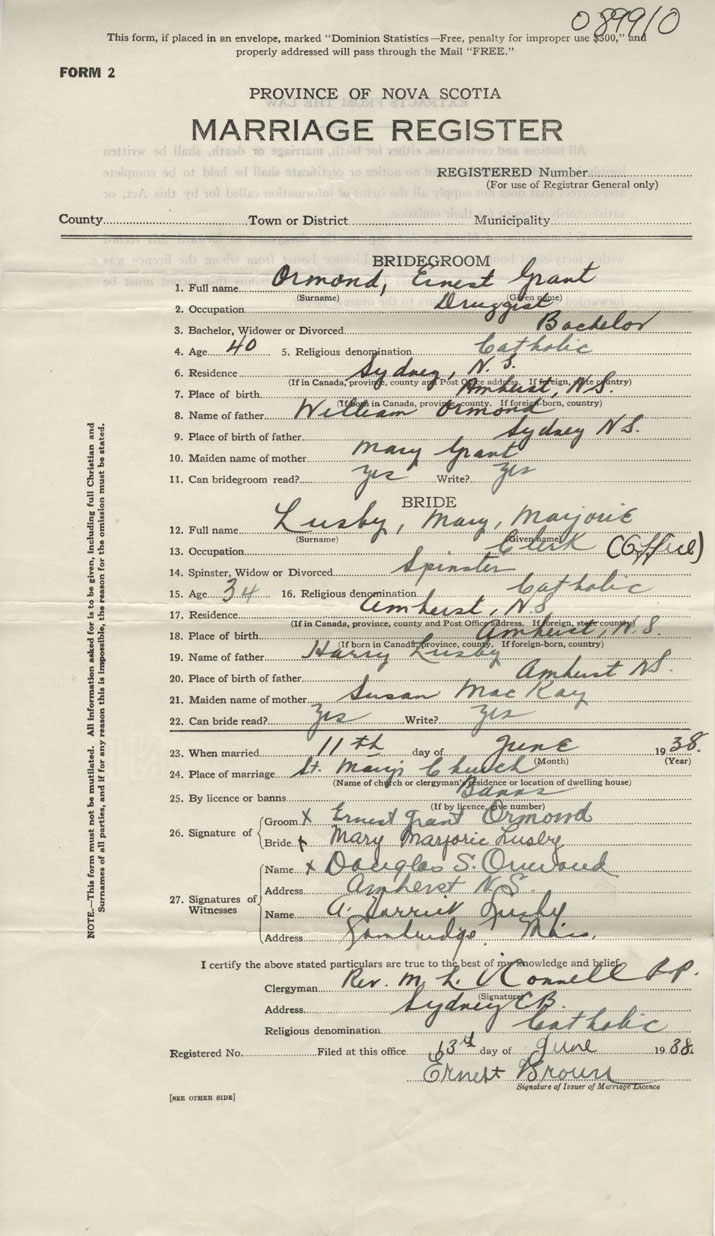 089910
This form, if placed in an envelope, marked "Dominion Statistics—Free, penalty for improper use $300," and
properly addressed will pass through the Mail "FREE."
FORM 2
PROVINCE OF NOVA SCOTIA
MARRIAGE REGISTER
REGISTERED Number
(For use of Registrar General only)
County Town or District Municipality
BRIDEGROOM
1. Full name Ormond, Ernest Grant
(Surname) (Given name)
2. Occupation Druggist
3. Bachelor, Widower or Divorced Bachelor
4. Age 40 5. Religious denomination Catholic
6. Residence Sydney, N.S.
(If in Canada, province, county and Post Office address. If foreign, state country)
7. Place of birth Amherst, N.S.
(If born in Canada, province, county. If foreign-born, country)
8. Name of father William Ormond
9. Place of birth of father Sydney N.S.
10. Maiden name of mother Mary Grant
11. Can bridegroom read? Yes Write? Yes
BRIDE
12. Full name Lusby, Mary, Marjorie
(Surname) (Given name)
13. Occupation Clerk (Office)
14. Spinster, Widow or Divorced Spinster
15. Age 34 16. Religious denomination Catholic
17. Residence Amherst, N.S
(If in Canada, province, county and Post Office address. If foreign, state country)
18. Place of birth Amherst, N.S.
(If born in Canada, province, county. If foreign-born, country)
19. Name of father Harry Lusby
20. Place of birth of father Amherst N.S.
21. Maiden name of mother Susan MacKay
22. Can bride read? Yes Write? Yes
23. When married 11th day of June 1938.
(Month) (Year)
24. Place of marriage St. Mary's Church
(Name of church or clergyman's residence or location of dwelling house)
25. By licence or banns Banns
(If by licence, give number)
26. Signature of Groom x Ernest Grant Ormond
Bride x Mary Marjorie Lusby
27. Signatures of Witnesses Name x Douglas S. Ormond
Address Amherst N.S.
Name A. Harriet Lusby
Address Cambridge Mass.
I certify the above stated particulars are true to the best of my knowledge and belief.
Clergyman Rev. M. L. O'Connell P.P.
(Signature)
Address Sydney C.B.
Religious denomination Catholic
Registered No. Filed at this office 13rd day of June 1938.
Ernest Brown
Signature of Issuer of Marriage Licence
[SEE OTHER SIDE]
NOTE.—This form must not be mutilated. All information asked for is to be given, including full Christian and
Surnames of all parties, and if for any reason this is impossible, the reason for the omission must be stated.